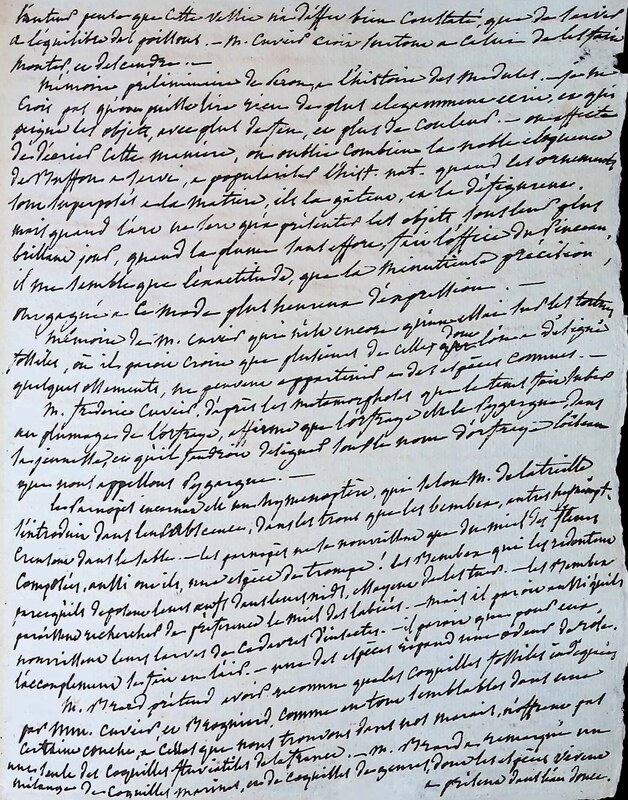 l'auteur pense que cette vessie n'a d'effet bien constaté, que de servir
a l'équilibre des poissons. — M. Cuvier croit surtout a celui de les faire
monter, et descendre. —
Mémoire préliminaire de Peron, a l'histoire des Meduses. — je ne
crois pas qu'on puisse lire rien de plus elegamment ecrit, et qui
peigne les objets, avec plus de feu, et plus de couleur. — on affecte
de décrier cette manière, on oublie combien la noble éloquence
de Buffon a servi, a populariser l'hist. nat. quand les ornements
sont superposés a la matière, ils la gâtent, et la défigurent.
mais quand l'art ne sert qu'a présenter les objets sous leur plus
brillant jour, quand la plume sans effort, fait l'office du pinceau,
il me semble que l'exactitude, que la minutieuse précision,
ont gagné a ce mode plus heureux d'expression. —
Mémoire de M. Cuvier qui n'est encore qu'un essai sur les tortues
fossiles, où il paroit croire que plusieurs de celles dont l'on a désigné
quelques ossements, ne peuvent appartenir a des espèces connues. —
M. frederic Cuvier, d'après les métamorphoses que le tems fait subir
au plumage de l'orfraye, affirme que l'orfraye est le Pygargue, dans
sa jeunesse, et qu'il faudroit designer sous le nom d'orfraye l'oiseau
que nous appellons Pygargue. —
les Parnopès incarnat est un hymenoptère, qui selon M. de latreille
s'introduit dans leur absence, dans les trous que les bembex, autres hyménopt.
creusent dans le sable. — les parnopès ne se nourrissent que du miel des fleurs
composées, aussi ont ils, une espèce de trompe! les Bembex qui les redoutent
parcequ'ils deposent leurs œufs dans leurs nids, essayent de les tuer. — les Bembex
paroissent rechercher de preference le miel des labiées. — Mais il paroit aussi qu'ils
nourrissent leurs larves de cadavres d'insectes. — il paroit que pour eux,
l'accouplement se fait en l'air. — une des espèces répand une odeur de rose.
M. Brard prétend avoir reconnu que les coquilles fossiles indiquées
par MM. Cuvier, et Brogniard, comme en tout semblables dans une
certaine couche, a celles que nous trouvons dans nos marais, n'offrent pas
une seule des coquilles fluviatiles de la france. — M. Brard a remarqué un
mélange de coquilles marines, et de coquilles de genres, dont les espèces vivent
a présent dans l'eau douce.